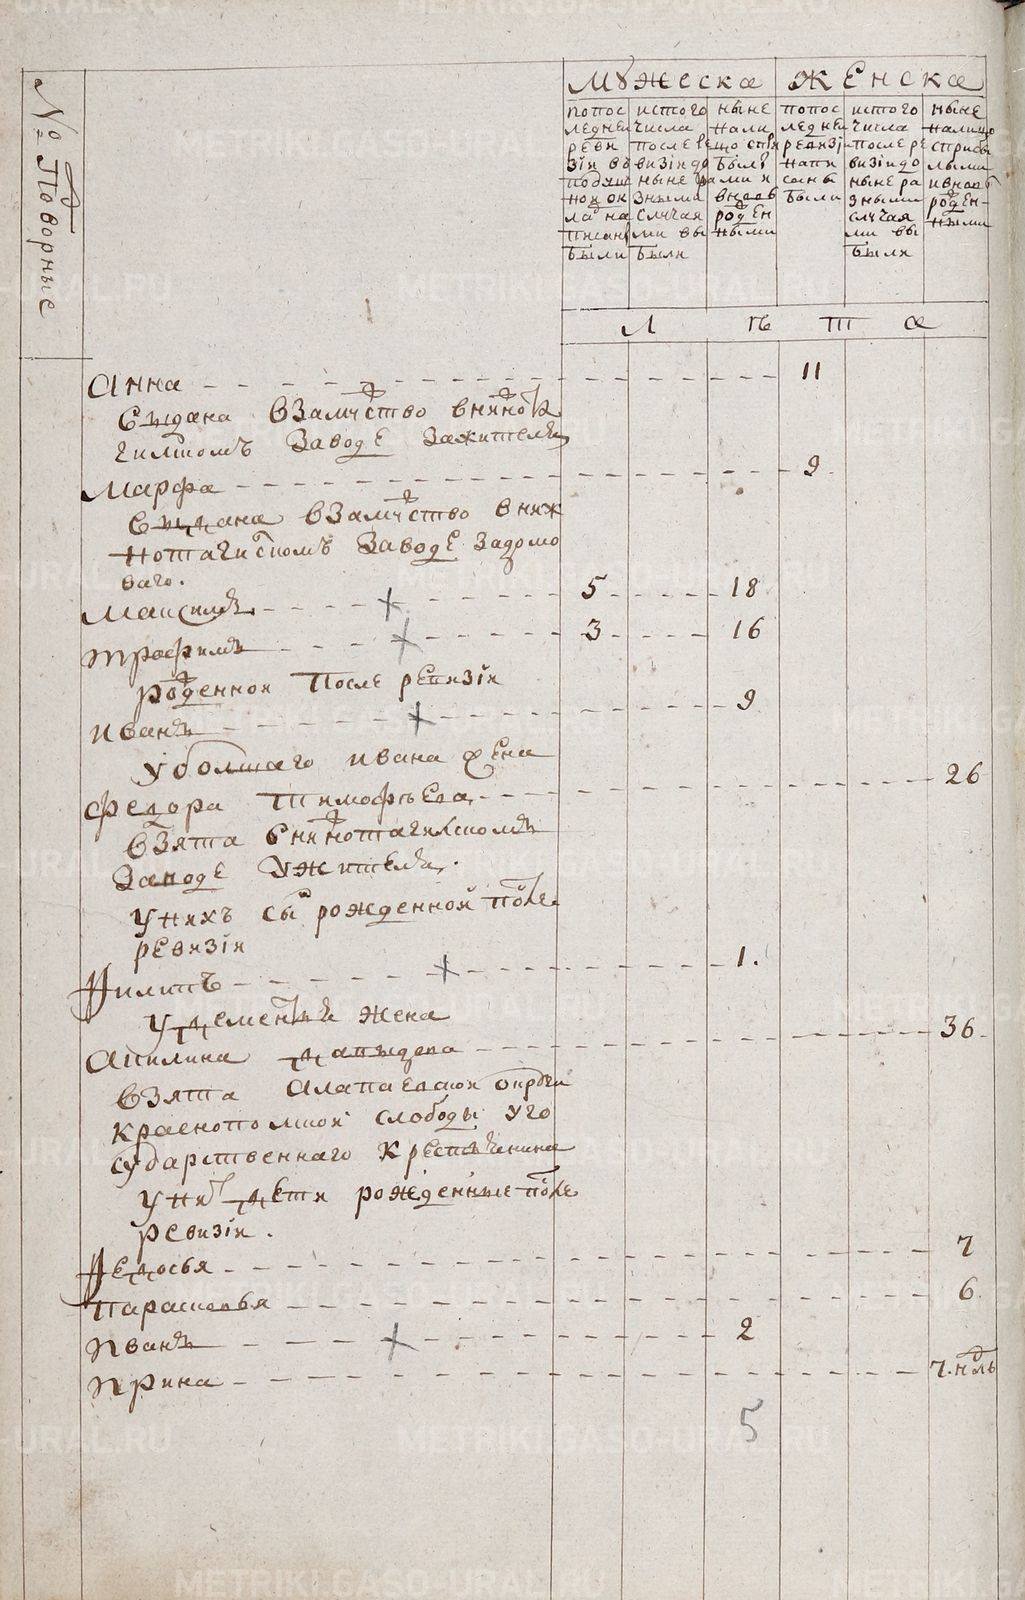 № Подворные
Мужеска
женска
попос
ледней
реви
зіи въ
подуш
ной ок
ладъ на
писаны
были
истого
числа
после ре
визіи до
ныне ра
зными
случая
ми вы
были
ныне
нали
цо спри
былы
ми и
вновь
рожден
ными
попос
ледней
ревизі
напи
саны
были
истого
числа
после ре
визіи до
ныне ра
зными
случая
ми вы
были
ныне
налицо
сприбы
лыми
ивновь
рожден-
ными
л ѣ т а
Анна 11
выдана взамужство внижнота
гилскомъ заводе зажителя
Марфа 9.
выдана взамужство вниж
нотагилскомъ заводе задомо
ваго.
Максимъ 5 18
трофимъ 3 16
рожденнои после ревизіи
иванъ 9
у болшаго ивана жена
федора тимофѣева 26
взята внижнотагилскомъ
заводе ужителя.
унихъ сынъ рожденной после
ревизіи
Филипъ 1.
у дементья жена
акилина давыдова 36.
взята алапаевскои округи
краснополской слободы у го
сударственнаго крестьянина
унихъ дети рожденные после
ревизіи.
Федосья 7
парасковья 6.
иванъ 2
ирина 7. недѣль
5
METRIKI.GASO-URAL.RU